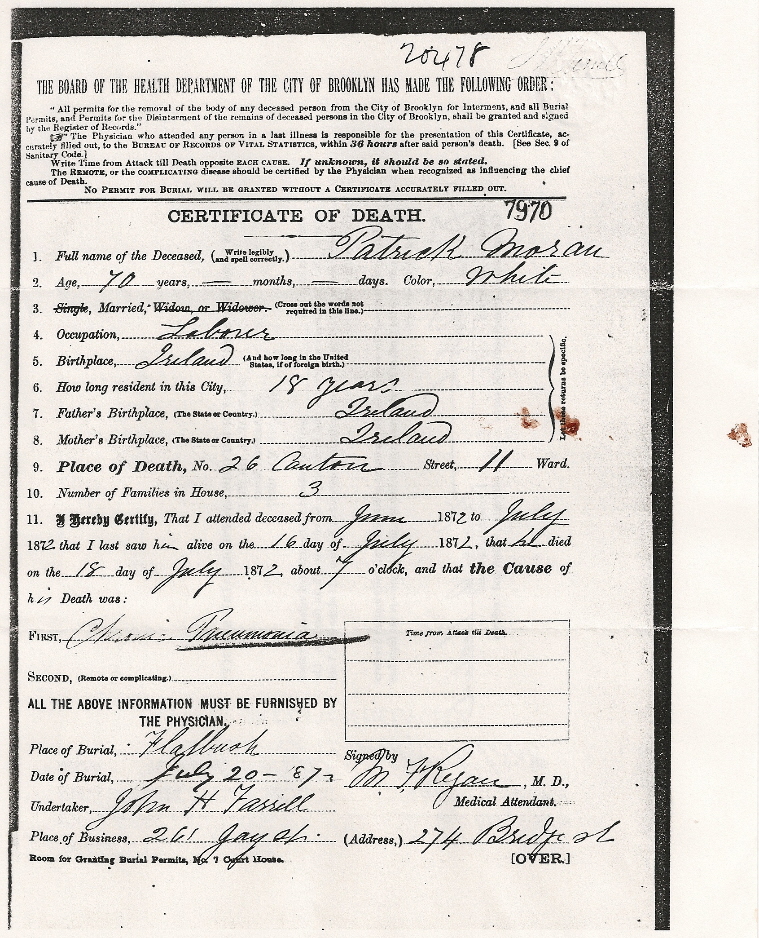 20478
THE BOARD OF THE HEALTH DEPARTMENT OF THE CITY OF BROOKLYN HAS MADE THE FOLLOWING ORDER:
"All permits for the removal of the body of any deceased person from the City of Brooklyn for Interment, and all Burial
Permits, and Permits for the Disinterment of the remains of deceased persons in the City of Brooklyn, shall be granted and signed
by the Register of Records."
☞ "The Physician who attended any person in a last illness is responsible for the presentation of this Certificate, ac-
curately filled out, to the BUREAU OF RECORDS OF VITAL STATISTICS, within 36 hours after said person's death. [See Sec. 9 of
Sanitary Code.]
Write Time from Attack till Death opposite EACH CAUSE. If unknown, it should be so stated.
The REMOTE, or the COMPLICATING disease should be certified by the Physician when recognized as influencing the chief
cause of Death.
NO PERMIT FOR BURIAL WILL BE GRANTED WITHOUT A CERTIFICATE ACCURATELY FILLED OUT.
CERTIFICATE OF DEATH. 7970
1. Full name of the Deceased, (Write legibly and spell correctly.) Patrick Moran
2. Age, 70 years, — months, — days. Color, White
3. Single, Married, Widow, or Widower. (Cross out the words not required in this line.)
4. Occupation, Laborer
5. Birthplace, Ireland (And how long in the United States, if of foreign birth.)
6. How long resident in this City, 18 years
7. Father's Birthplace, (The State or Country.) Ireland
8. Mother's Birthplace, (The State or Country.) Ireland
Let these returns be specific.
9. Place of Death, No. 26 Canton Street, 11 Ward.
10. Number of Families in House, 3
11. I Hereby Certify, That I attended deceased from June 1872 to July
1872 that I last saw him alive on the 16 day of July 1872, that he died
on the 18 day of July 1872 about 7 o'clock, and that the Cause of
his Death was:
FIRST, Chronic Pneumonia
Time from Attack till Death.
SECOND, (Remote or complicating.)
ALL THE ABOVE INFORMATION MUST BE FURNISHED BY
THE PHYSICIAN.
Place of Burial, Flatbush
Date of Burial, July 20 - '872
Signed by M F Regan, M. D.,
Medical Attendant.
Undertaker, John H Farrell
Place of Business, 261 Jay st. (Address,) 274 Bridge st
Room for Granting Burial Permits, No. 7 Court House. [OVER.]